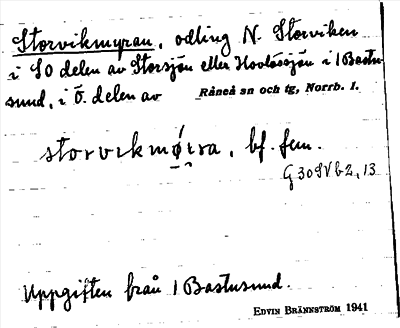 Storvikmyran, odling N. Storviken
i SO delen av Storsjön eller Hovlössjön i 1 Bastu-
sund, i Ö. delen av Råneå sn och tg, Norrb. l.
storvikmø̯i̯ra, bf. fem.
G 30 SV b 2, 13
Uppgiften från 1 Bastusund.
EDVIN BRÄNNSTRÖM 1941